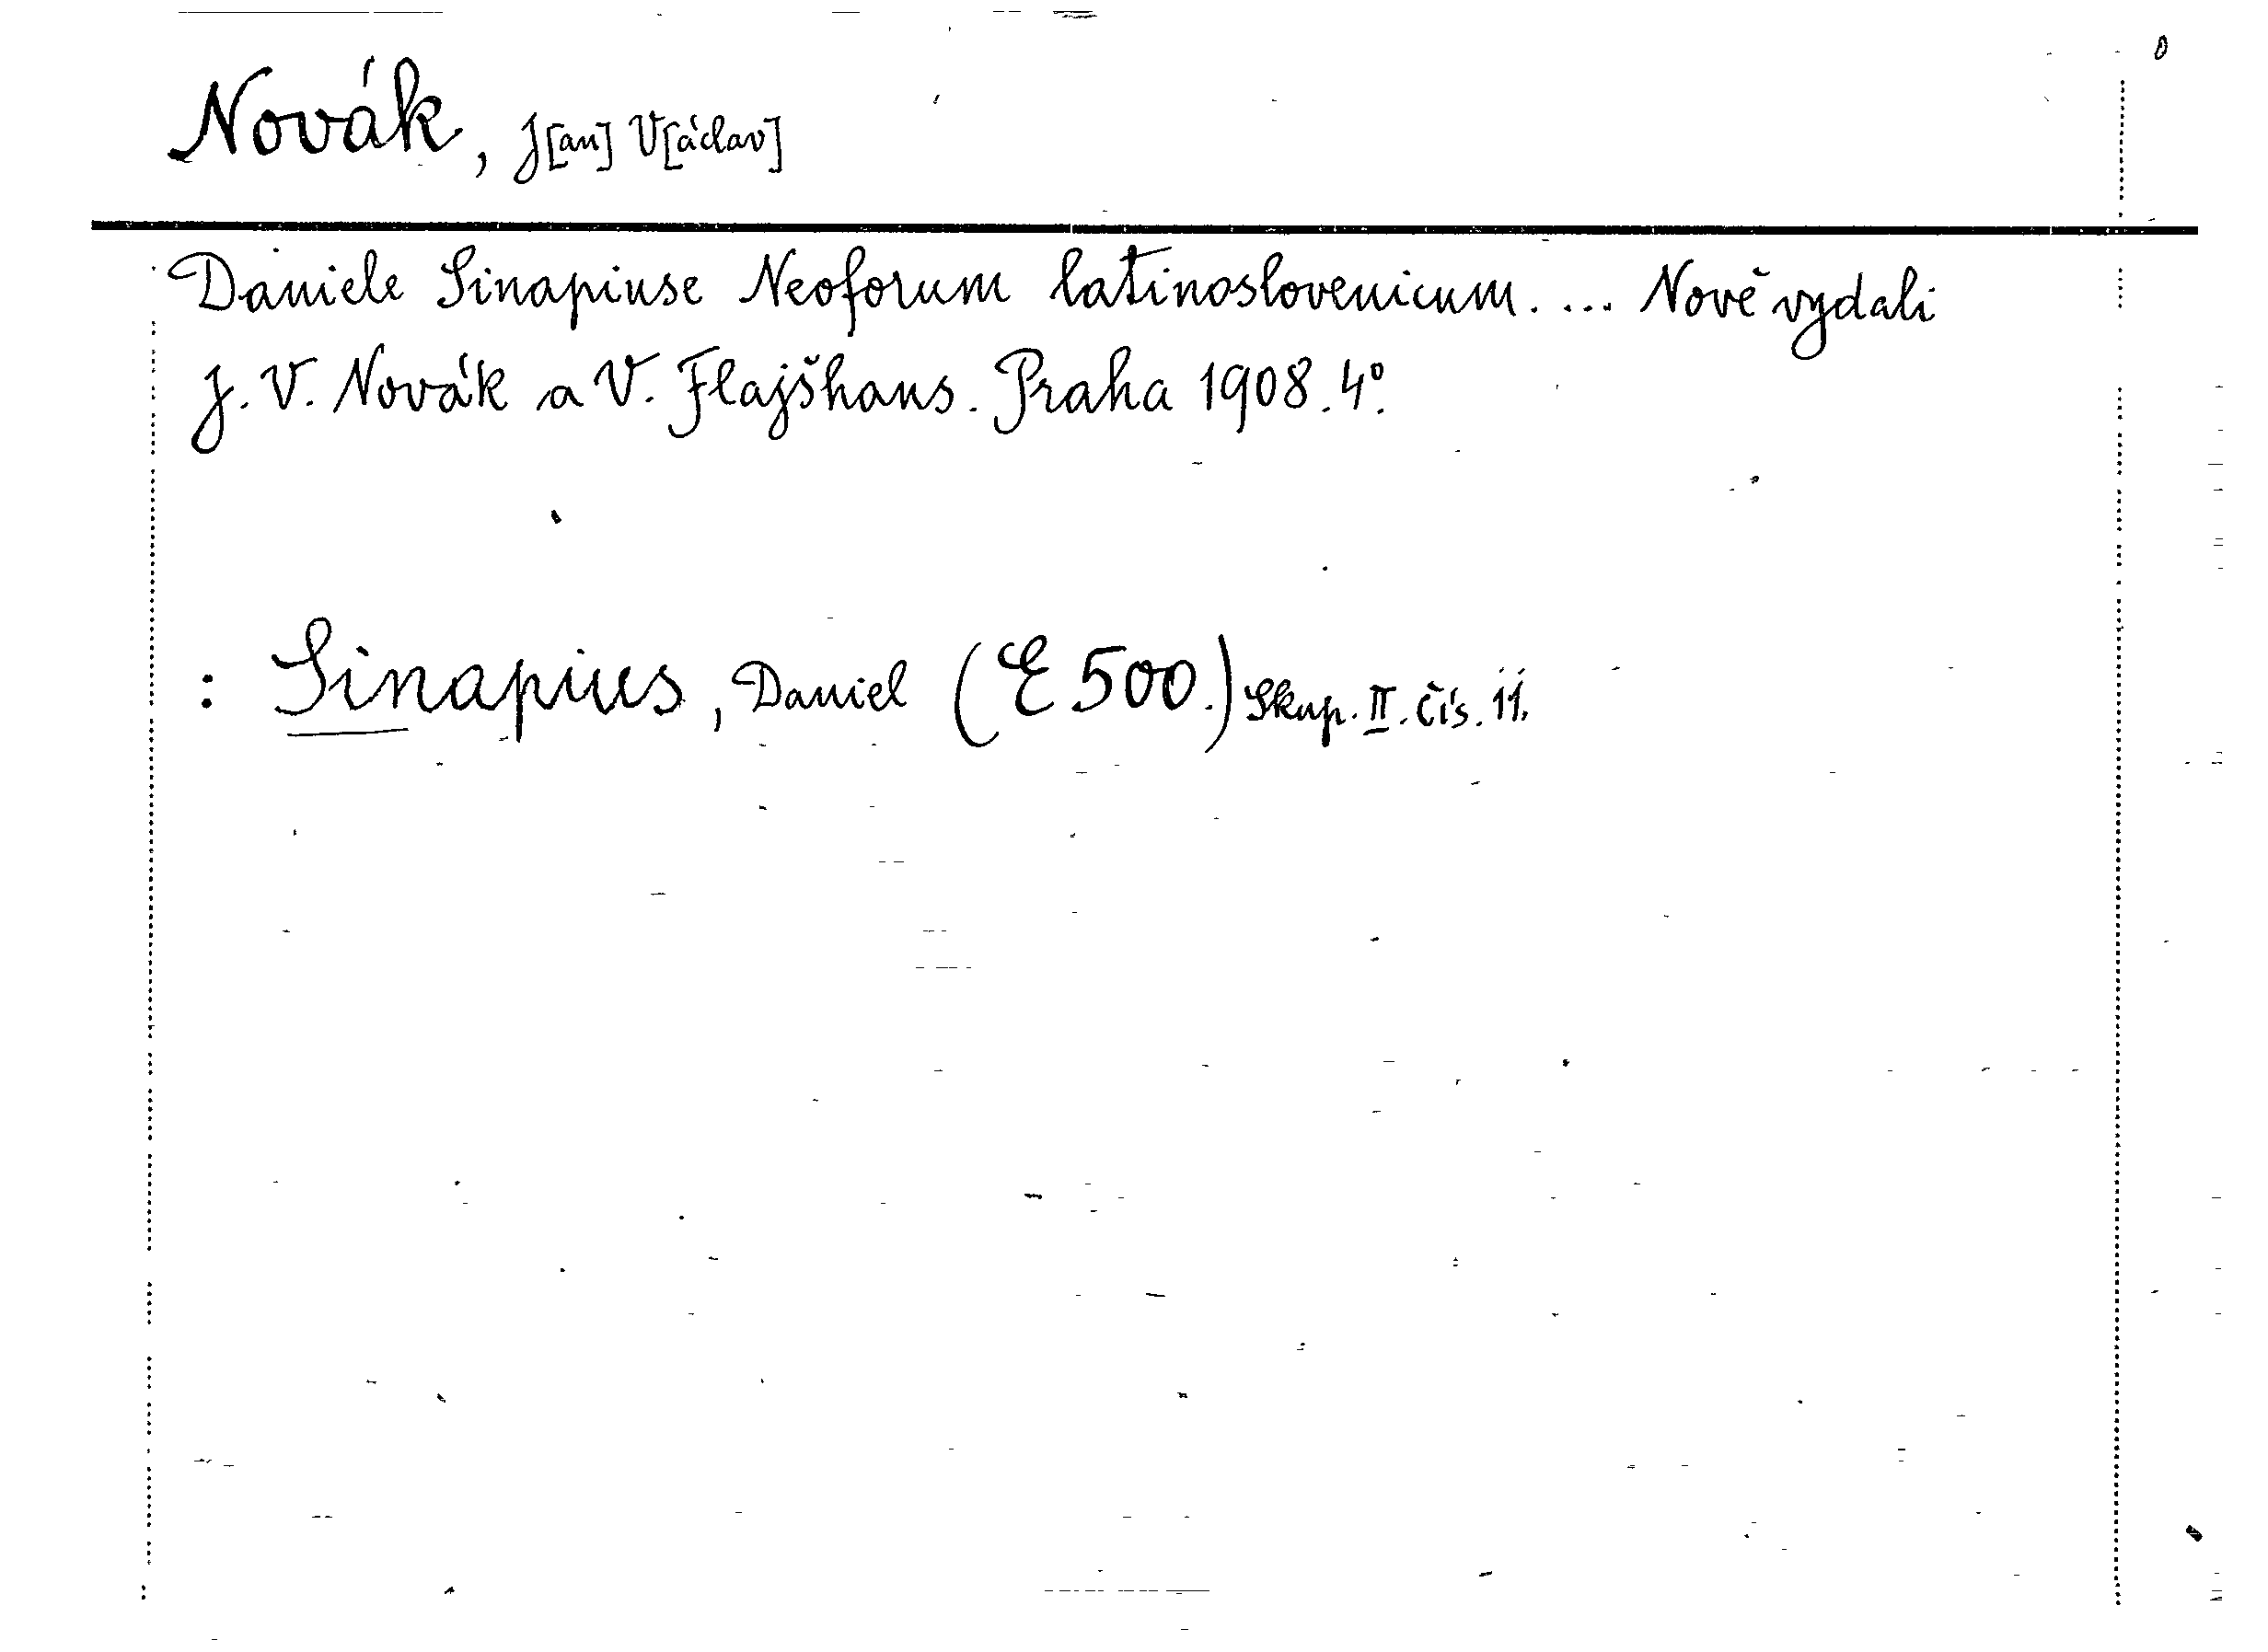 Novák, J[an] V[áclav]
Daniele Sinapiuse Neoforum latinoslovenicum. ... Nově vydali
J. V. Novák a V. Flajšhans. Praha 1908. 4°.
: Sinapius, Daniel (E 500.) Skup. II. čís. 11.